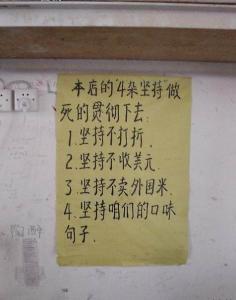 本店的"4朵坚持"做
死的贯彻下去.
1.坚持不打折.
2.坚持不收美元
3.坚持不卖外国米.
4.坚持咱们的口味
句子.